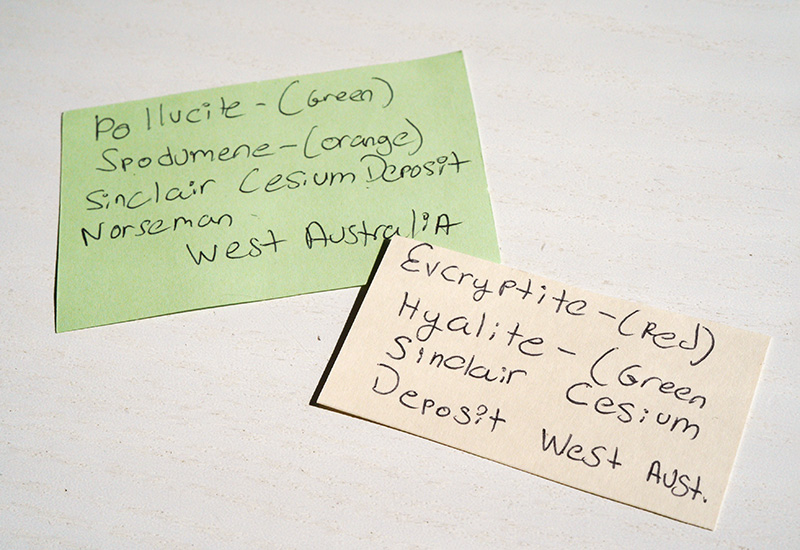 Pollucite - (Green)
Spodumene - (orange)
Sinclair Cesium Deposit
Norseman
West Australia
Evcryptite - (Red)
Hyalite - (Green
Sinclair Cesium
Deposit West Aust.